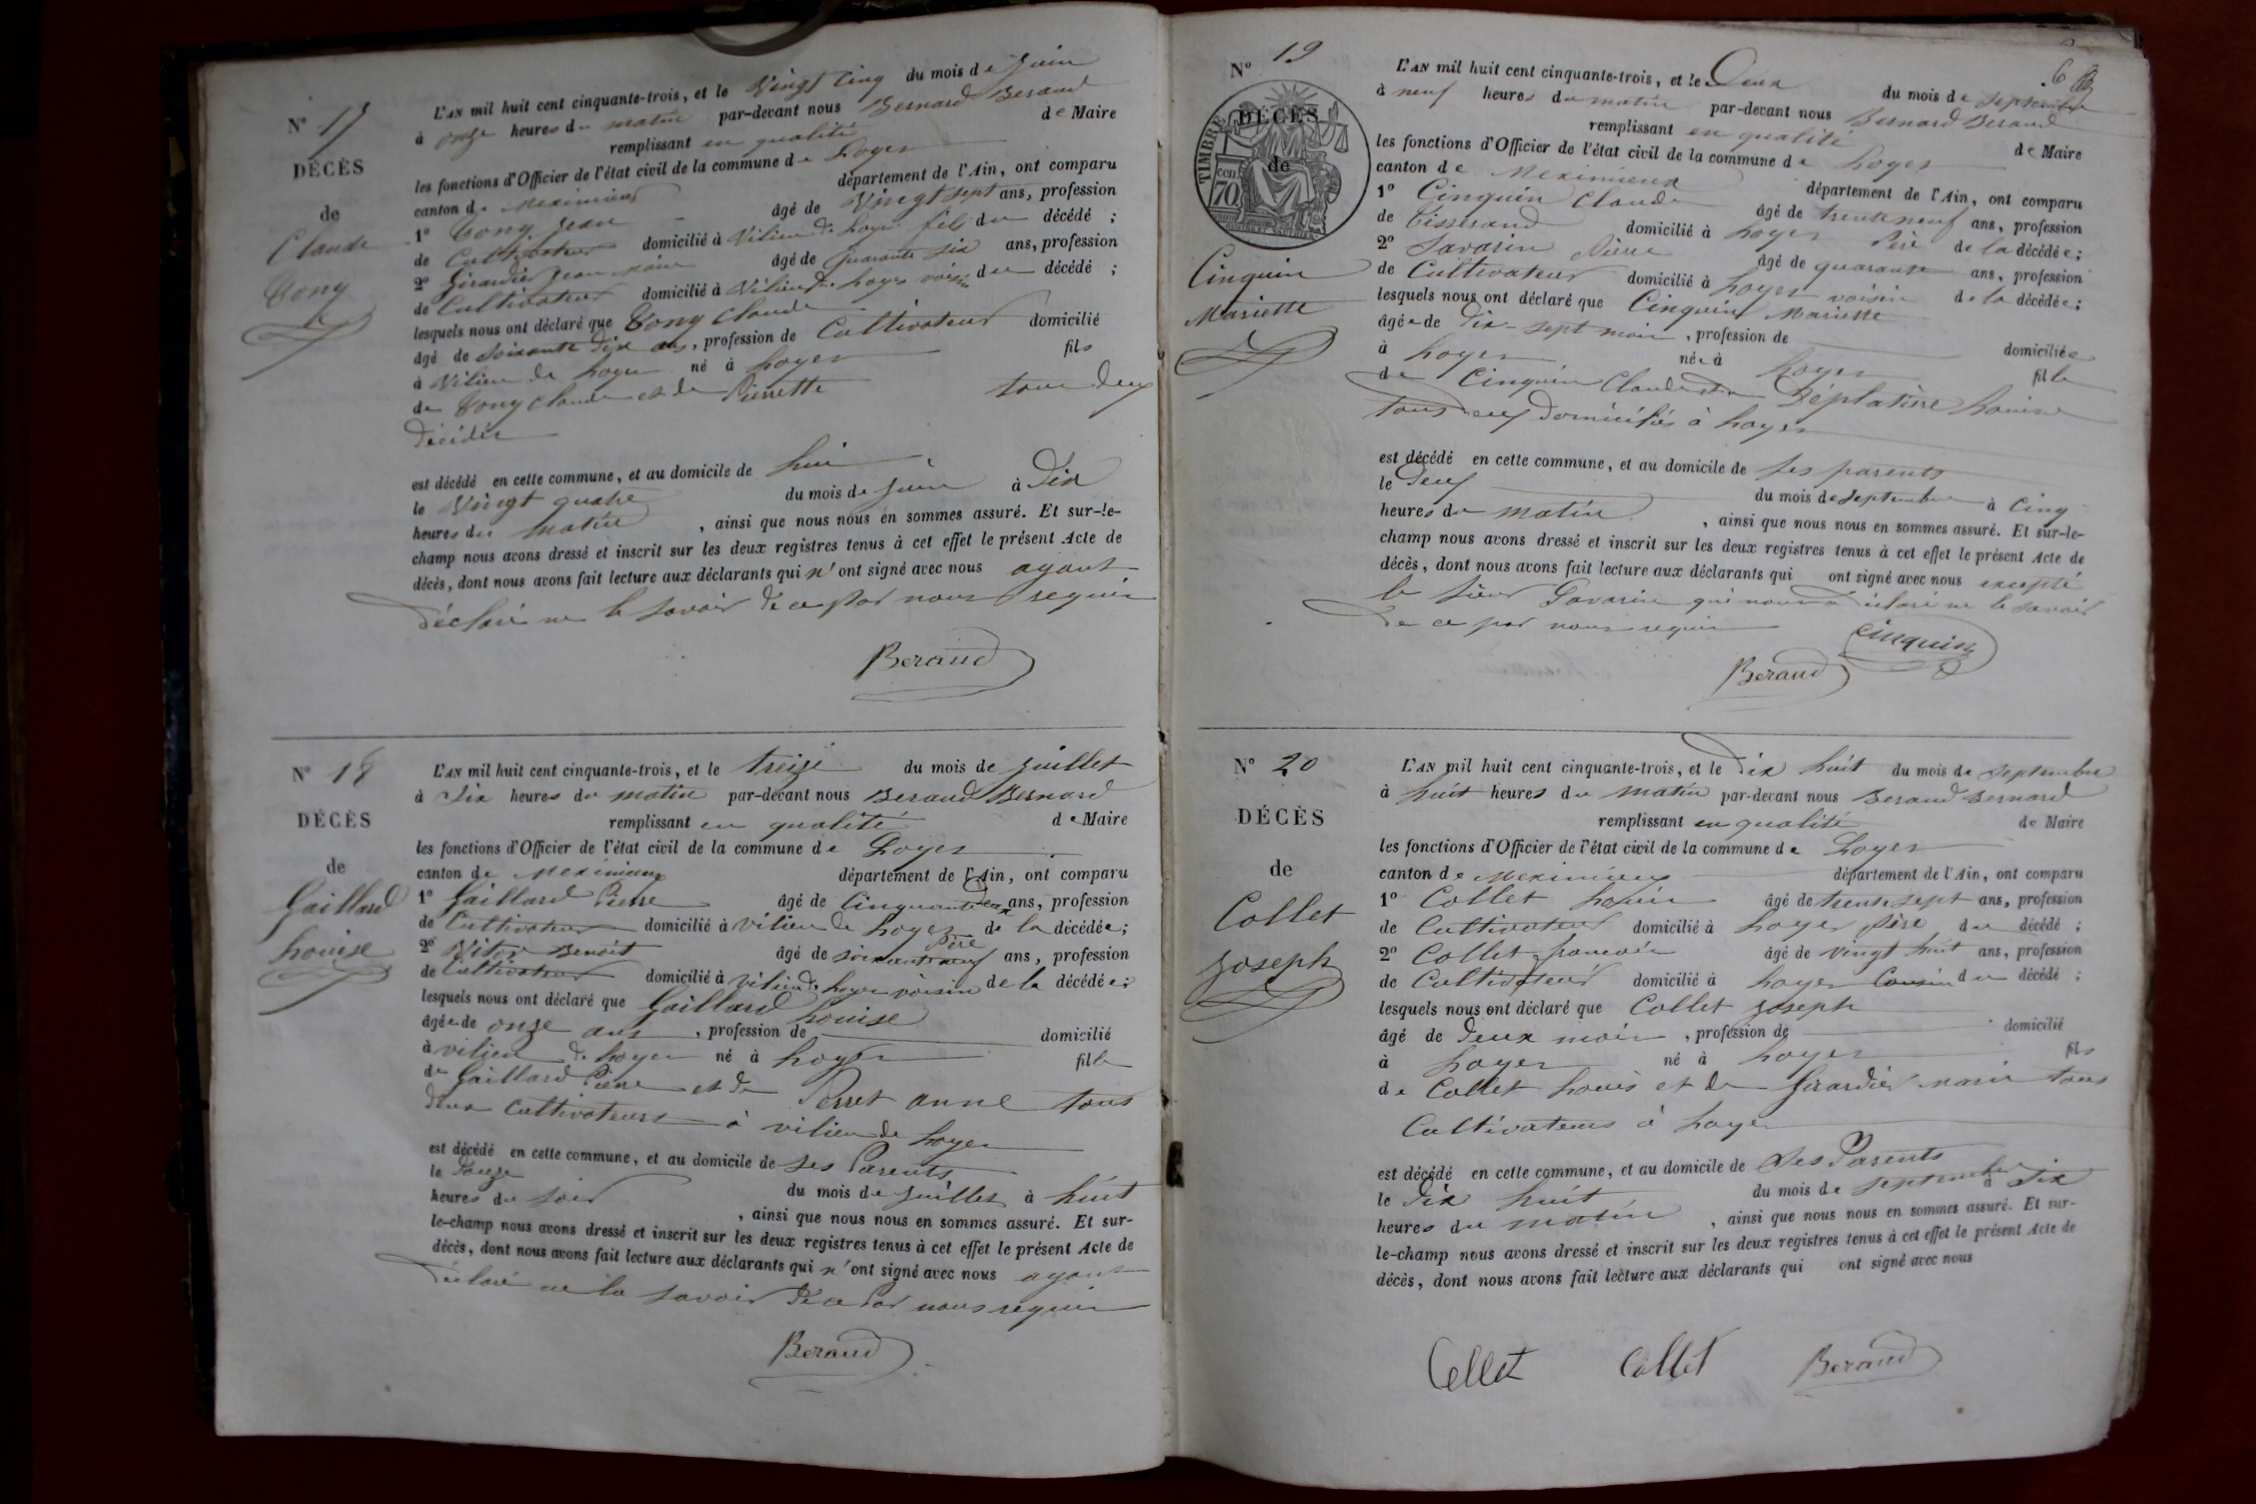 N° 17
DÉCÈS
de
Claude
Cony
L'AN mil huit cent cinquante-trois, et le Vingt Cinq du mois de Juin
à onze heures du matin par-devant nous Bernard Beraud
remplissant en qualité de Maire
les fonctions d'Officier de l'état civil de la commune de Loyes
canton de Meximieux département de l'Ain, ont comparu
1° Cony Jean âgé de Vingt sept ans, profession
de Cultivateur domicilié à Vilieu de Loyes fils du décédé ;
2° Girardier Jean Marie âgé de quarante six ans, profession
de Cultivateur domicilié à Vilieu de Loyes voisin du décédé ;
lesquels nous ont déclaré que Cony Claude
âgé de soixante dix ans, profession de Cultivateur domicilié
à Vilieu de Loyes né à Loyes fils
de Cony Claude et de Pierrette tous deux
décédés
est décédé en cette commune, et au domicile de lui
le Vingt quatre du mois de Juin à Dix
heures du matin, ainsi que nous nous en sommes assuré. Et sur-le-
champ nous avons dressé et inscrit sur les deux registres tenus à cet effet le présent Acte de
décès, dont nous avons fait lecture aux déclarants qui n'ont signé avec nous ayant
déclaré ne le savoir de ce par nous requis
Beraud
N° 18
DÉCÈS
de
Gaillard
Louise
L'AN mil huit cent cinquante-trois, et le treize du mois de Juillet
à Dix heures du matin par-devant nous Beraud Bernard
remplissant en qualité de Maire
les fonctions d'Officier de l'état civil de la commune de Loyes
canton de Meximieux département de l'Ain, ont comparu
1° Gaillard Pierre âgé de Cinquante deux ans, profession
de Cultivateur domicilié à vilieu de Loyes père de la décédée ;
2° Vitor Benoit âgé de soixante neuf ans, profession
de Cultivateur domicilié à vilieu de Loyes voisin de la décédée ;
lesquels nous ont déclaré que Gaillard Louise
âgée de onze ans, profession de domicilié
à vilieu de Loyes né à Loyes fille
de Gaillard Pierre et de Perret anne tous
deux Cultivateurs à vilieu de Loyes
est décédé en cette commune, et au domicile de ses Parents
le Douze du mois de Juillet à huit
heures du soir, ainsi que nous nous en sommes assuré. Et sur-
le-champ nous avons dressé et inscrit sur les deux registres tenus à cet effet le présent Acte de
décès, dont nous avons fait lecture aux déclarants qui n'ont signé avec nous ayant
déclaré ne le savoir de ce Par nous requis
Beraud
6
N° 19
TIMBRE
70
DÉCÈS
de
Cinquin
Mariette
L'AN mil huit cent cinquante-trois, et le Deux du mois de Septembre
à neuf heures du matin par-devant nous Bernard Beraud
remplissant en qualité de Maire
les fonctions d'Officier de l'état civil de la commune de Loyes
canton de Meximieux département de l'Ain, ont comparu
1° Cinquin Claude âgé de trente neuf ans, profession
de Tisserand domicilié à Loyes Père de la décédée ;
2° Savarin Pierre âgé de quarante ans, profession
de Cultivateur domicilié à Loyes voisin de la décédée ;
lesquels nous ont déclaré que Cinquin Mariette
âgée de Dix-sept mois, profession de domiciliée
à Loyes née à Loyes fille
de Cinquin Claude et de Déplatine Louise
tous deux domiciliés à Loyes
est décédé en cette commune, et au domicile de ses parents
le Deux du mois de Septembre à Cinq
heures du matin, ainsi que nous nous en sommes assuré. Et sur-le-
champ nous avons dressé et inscrit sur les deux registres tenus à cet effet le présent Acte de
décès, dont nous avons fait lecture aux déclarants qui ont signé avec nous excepté
le sieur Savarin qui nous a déclaré ne le savoir
de ce par nous requis
Cinquin
Beraud
N° 20
DÉCÈS
de
Collet
Joseph
L'AN mil huit cent cinquante-trois, et le Dix huit du mois de Septembre
à huit heures du matin par-devant nous Beraud Bernard
remplissant en qualité de Maire
les fonctions d'Officier de l'état civil de la commune de Loyes
canton de Meximieux département de l'Ain, ont comparu
1° Collet Louis âgé de trente sept ans, profession
de Cultivateur domicilié à Loyes père du décédé ;
2° Collet françois âgé de vingt huit ans, profession
de Cultivateur domicilié à Loyes Cousin du décédé ;
lesquels nous ont déclaré que Collet Joseph
âgé de Deux mois, profession de domicilié
à Loyes né à Loyes fils
de Collet Louis et de Girardier Marie tous
Cultivateurs à Loyes
est décédé en cette commune, et au domicile de Ses Parents
le Dix huit du mois de septembre Six
heures du matin, ainsi que nous nous en sommes assuré. Et sur-
le-champ nous avons dressé et inscrit sur les deux registres tenus à cet effet le présent Acte de
décès, dont nous avons fait lecture aux déclarants qui ont signé avec nous
Collet Collet Beraud